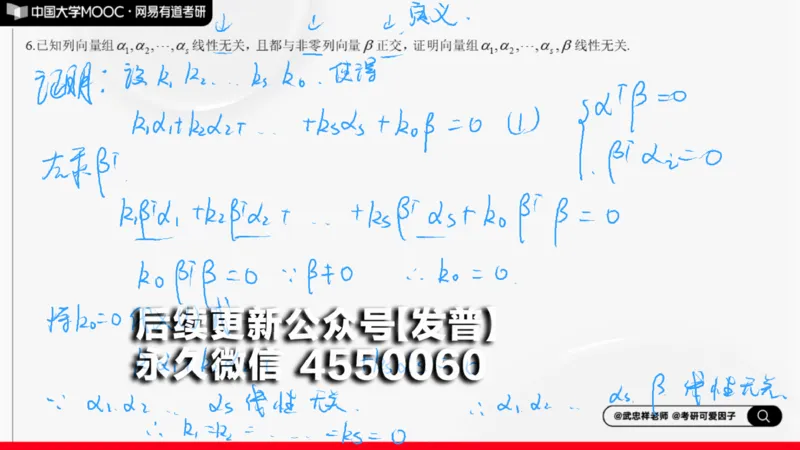 中国大学MOOC·网易有道考研
定义.
6.已知列向量组α₁,α₂,⋯,αₛ线性无关，且都与非零列向量β正交，证明向量组α₁,α₂,⋯,αₛ,β线性无关.
证明：设 k₁ k₂ ... kₛ k₀. 使得
k₁α₁+k₂α₂+ ... +kₛαₛ+k₀β=0 (1)
αᵀβ=0
βᵀαᵢ=0
左乘βᵀ
k₁βᵀα₁+k₂βᵀα₂+ ... +kₛβᵀαₛ+k₀βᵀβ=0
k₀βᵀβ=0 ∵β≠0 ∴k₀=0.
将k₀=0
后续更新公众号[发普]
永久微信 4550060
∵ α₁.α₂ ... αₛ线性无关.
∴ α₁.α₂ ... αₛ. β 线性无关.
@武忠祥老师 @考研可爱因子
∴ k₁=k₂= ... =kₛ=0